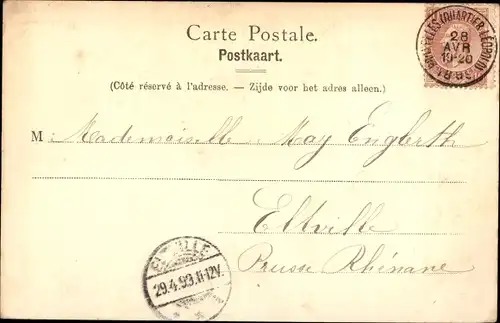 Carte Postale.
Postkaart.
(Côté réservé à l'adresse. — Zijde voor het adres alleen.)
M: Mademoiselle May Englerth
Eltville
Prusse Rhénane
BRUXELLES (QUARTIER LÉOPOLD)
28
AVR
19-20
1899
ELTVILLE
29.4.99.11-12V.